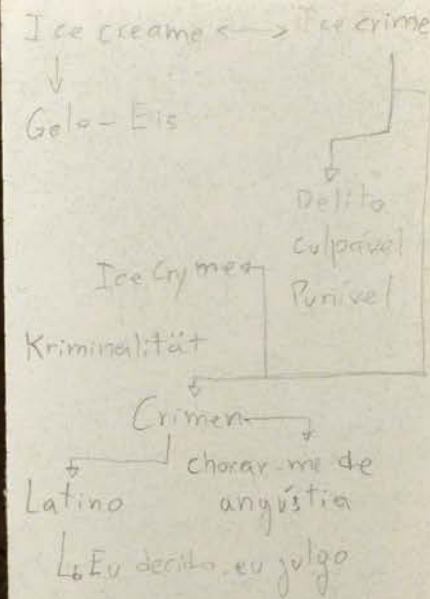 Ice creame <--> Ice crime
Gelo - Eis
Delito
culpável
Punível
Ice Crymes
Kriminalität
Crimen
chorar-me de
angústia
Latino
Eu decido, eu julgo